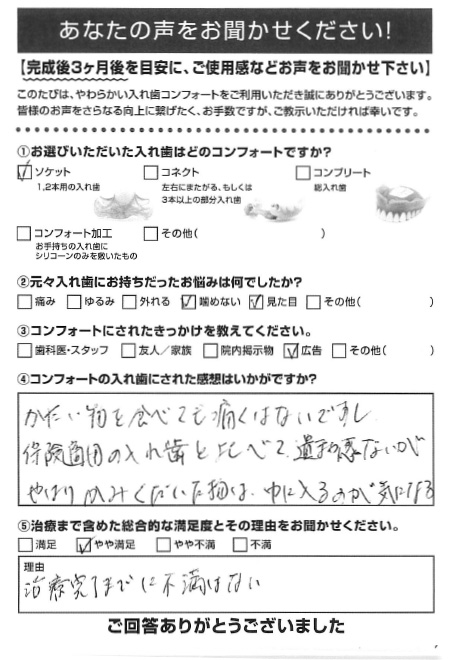 あなたの声をお聞かせください!
【完成後3ヶ月後を目安に、ご使用感などお声をお聞かせ下さい】
このたびは、やわらかい入れ歯コンフォートをご利用いただき誠にありがとうございます。
皆様のお声をさらなる向上に繋げたく、お手数ですが、ご教示いただければ幸いです。
①お選びいただいた入れ歯はどのコンフォートですか?
☑ソケット □コネクト □コンプリート
1,2本用の入れ歯 左右にまたがる、もしくは 総入れ歯
3本以上の部分入れ歯
□コンフォート加工 □その他( )
お手持ちの入れ歯に
シリコーンのみを敷いたもの
②元々入れ歯にお持ちだったお悩みは何でしたか?
□痛み □ゆるみ □外れる ☑噛めない ☑見た目 □その他( )
③コンフォートにされたきっかけを教えてください。
□歯科医・スタッフ □友人/家族 □院内掲示物 ☑広告 □その他( )
④コンフォートの入れ歯にされた感想はいかがですか?
かたい物を食べても痛くはないですし
保険適用の入れ歯と比べて、違和感ないが
やはりかみくだいた物は、中に入るのが気になる
⑤治療まで含めた総合的な満足度とその理由をお聞かせください。
□満足 ☑やや満足 □やや不満 □不満
理由
治療完了までに不満はない
ご回答ありがとうございました